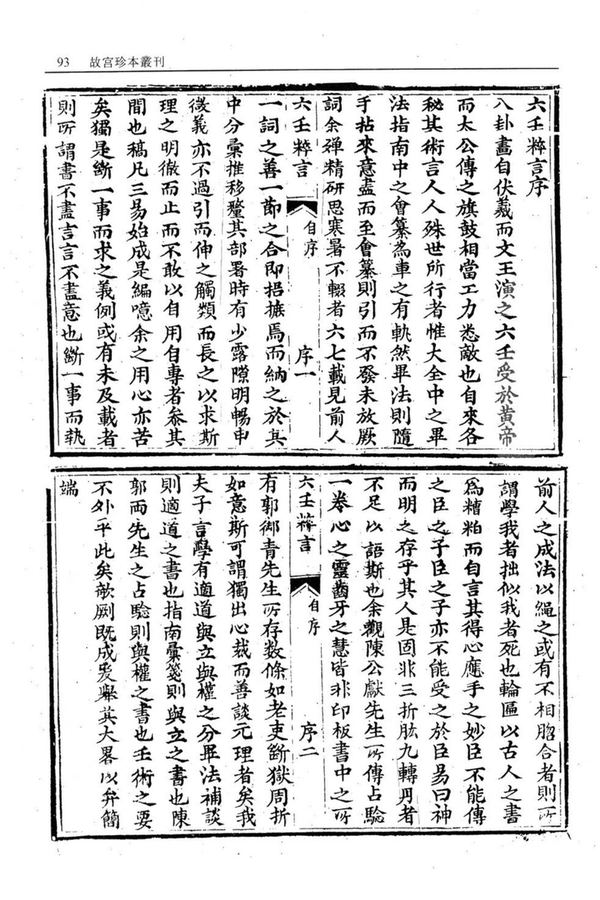 93 故宮珍本叢刊
六壬粹言序
八卦畫自伏羲而文王演之六壬受於黃帝
而太公傳之旗鼓相當工力悉敵也自來各
秘其術言人人殊世所行者惟大全中之畢
法指南中之會纂為車之有軌然畢法則隨
手拈來意盡而至會纂則引而不發未放厥
詞余殫精研思寒暑不輟者六七載見前人
六壬粹言 自序 序一
一詞之善一節之合即搭摭焉而納之於其
中分彙推移釐其部署時有少露隙明暢申
微義亦不過引而伸之觸類而長之以求斯
理之明徹而止而不敢以自用自專者叅其
間也稿凡三易始成是編噫余之用心亦苦
矣獨是斷一事而求之義例或有未及載者
則所謂書不盡言言不盡意也斷一事而執
前人之成法以繩之或有不相脗合者則所
謂學我者拙似我者死也輪匾以古人之書
為糟粕而自言其得心應手之妙臣不能傳
之臣之子臣之子亦不能受之於臣易曰神
而明之存乎其人是固非三折肱九轉丹者
不足以語斯也余觀陳公獻先生所傳占驗
一卷心之靈齒牙之慧皆非印板書中之所
六壬粹言 自序 序二
有郭御青先生所存数條如老吏斷獄周折
如意斯可謂獨出心裁而善談元理者矣我
夫子言學有適道與立與權之分畢法補談
則適道之書也指南彙箋則與立之書也陳
郭而先生之占驗則與權之書也壬術之要
不外乎此矣剞劂既成爰舉其大畧以弁簡
端